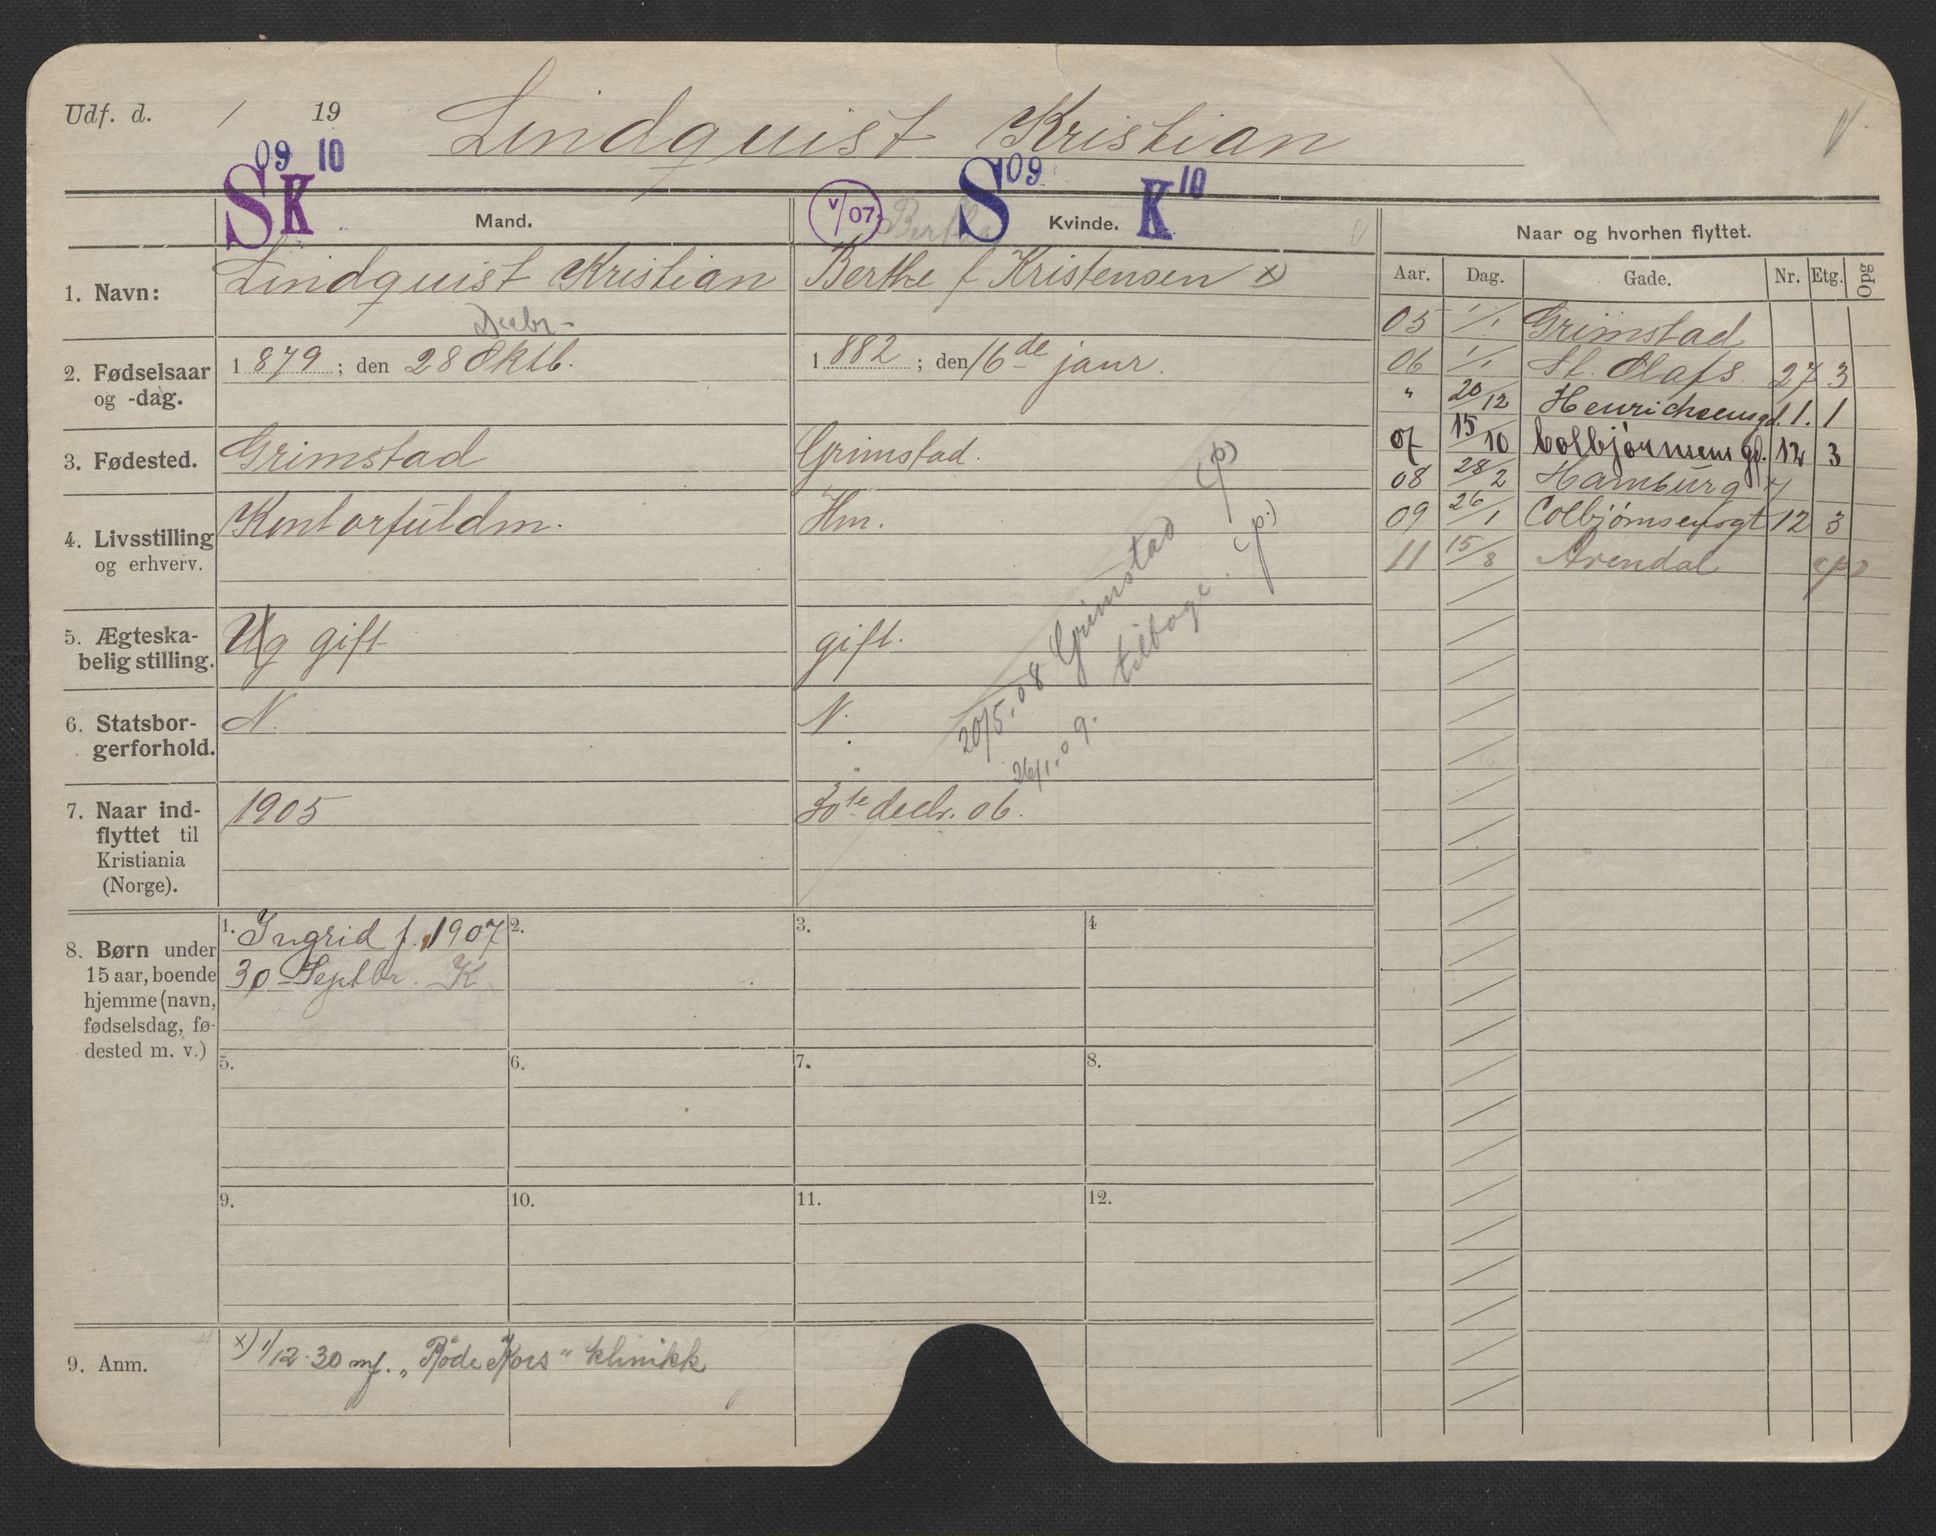 Udf. d. / 19
Lindquist Kristian
09 10
SK
v/07
S 09
K 10
Mand.
Kvinde.
Naar og hvorhen flyttet.
Aar. Dag. Gade. Nr. Etg. Opg
1. Navn: Lindquist Kristian
Berthe f Kristensen x)
Decbr
2. Fødselsaar og -dag. 1879; den 28 Oktb.
1882; den 16de janr.
3. Fødested. Grimstad
Grimstad.
4. Livsstilling og erhverv. Kontorfuldm.
Hm.
5. Ægteska-
belig stilling. Ug gift
gift.
6. Statsbor-
gerforhold. N.
N.
7. Naar ind-
flyttet til
Kristiania
(Norge).
1905
30te decbr. 06.
20/5.08 Grimstad (p)
26/1.09. tilbage. (p.)
8. Børn under
15 aar, boende
hjemme (navn,
fødselsdag, fø-
dested m. v.)
1. Ingrid f. 1907
30 Septbr. K
2.
3.
4
5.
6.
7.
8.
9.
10.
11.
12.
9. Anm. x) 1/12-30 mf. „Røde Kors" klinikk
05 1/1 Grimstad
06 1/1 St. Olafs 27 3
" 20/12 Henrichsensgd. 1. 1
07 15/10 Colbjørnsens gd. 12 3
08 28/2 Hamburg
09 26/1 Colbjørnsensgt 12 3
11 15/8 Arendal (p)